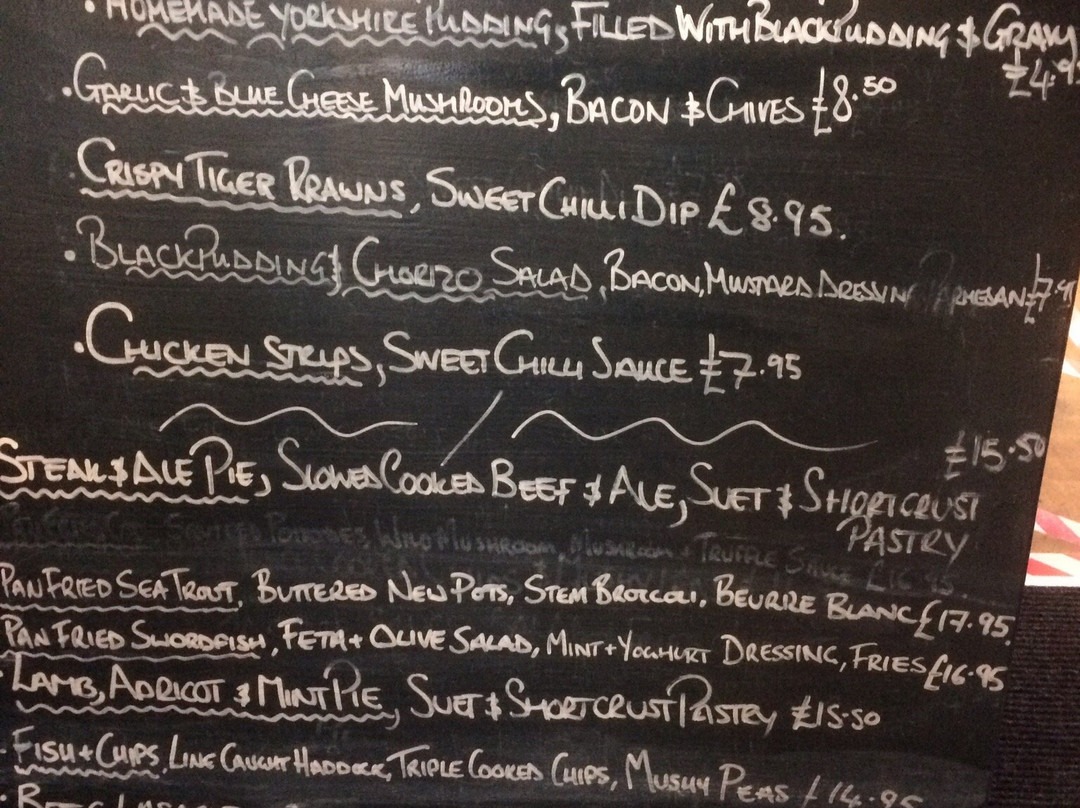 • HOMEMADE YORKSHIRE PUDDING, FILLED WITH BLACK PUDDING & GRAVY
£4.9
• GARLIC & BLUE CHEESE MUSHROOMS, BACON & CHIVES £8.50
CRISPY TIGER PRAWNS, SWEET CHILLI DIP £8.95.
• BLACK PUDDING & CHORIZO SALAD, BACON, MUSTARD DRESSING PARMESAN £7.9
• CHICKEN STRIPS, SWEET CHILLI SAUCE £7.95
£15.50
STEAK & ALE PIE, SLOWED COOKED BEEF & ALE, SUET & SHORTCRUST
PASTRY
SAUTEED POTATOES, WILD MUSHROOM, MUSHROOM + TRUFFLE SAUCE £16.95.
PAN FRIED SEA TROUT, BUTTERED NEW POTS, STEM BROCCOLI, BEURRE BLANC £17.95.
PAN FRIED SWORDFISH, FETA + OLIVE SALAD, MINT + YOGHURT DRESSING, FRIES £16.95
LAMB, APRICOT & MINT PIE, SUET & SHORTCRUST PASTRY £15.50
• FISH + CHIPS, LINE CAUGHT HADDOCK, TRIPLE COOKED CHIPS, MUSHY PEAS £14.95